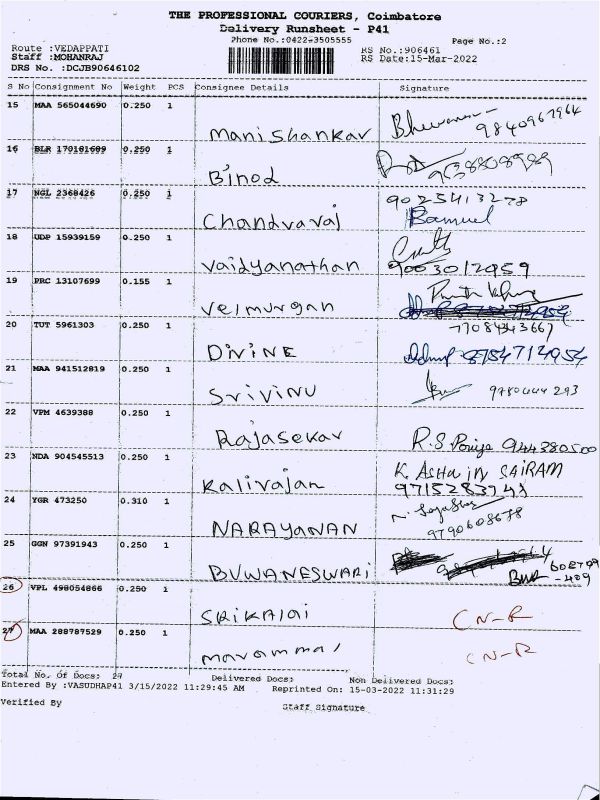 THE PROFESSIONAL COURIERS, Coimbatore
Delivery Runsheet - P41
Phone No.:0422-3505555 Page No.:2
Route :VEDAPPATI RS No.:906461
Staff :MOHANRAJ RS Date:15-Mar-2022
DRS No. :DCJB90646102
S No Consignment No Weight PCS Consignee Details Signature
15 MAA 565044690 0.250 1
Manishankar 9840967964
16 BLR 170181689 0.250 1
Binod
17 NGL 2368426 0.250 1 9025413278
Chandraraj Bamuel
18 UDP 15939159 0.250 1
Vaidyanathan 9003012959
19 PRC 13107699 0.155 1
Velmurgan
7708443667
20 TUT 5961303 0.250 1
DIVINE 8754712954
21 MAA 941512819 0.250 1
Srivinu
22 VPM 4639388 0.250 1
Rajasekar R.S. Poriya 944380500
23 NDA 904545513 0.250 1 K. ASHWIN SAIRAM
Kalirajan 9715283743
24 YGR 473250 0.310 1
NARAYANAN 9790608678
25 GGN 97391943 0.250 1
BUWANESWARI
26 VPL 498054866 0.250 1
SRIKALAI CN-R
27 MAA 288787529 0.250 1
Marammal CN-R
Total No. Of Docs: 27 Delivered Docs: Non Delivered Docs:
Entered By :VASUDHAP41 3/15/2022 11:29:45 AM Reprinted On: 15-03-2022 11:31:29
Verified By Staff Signature